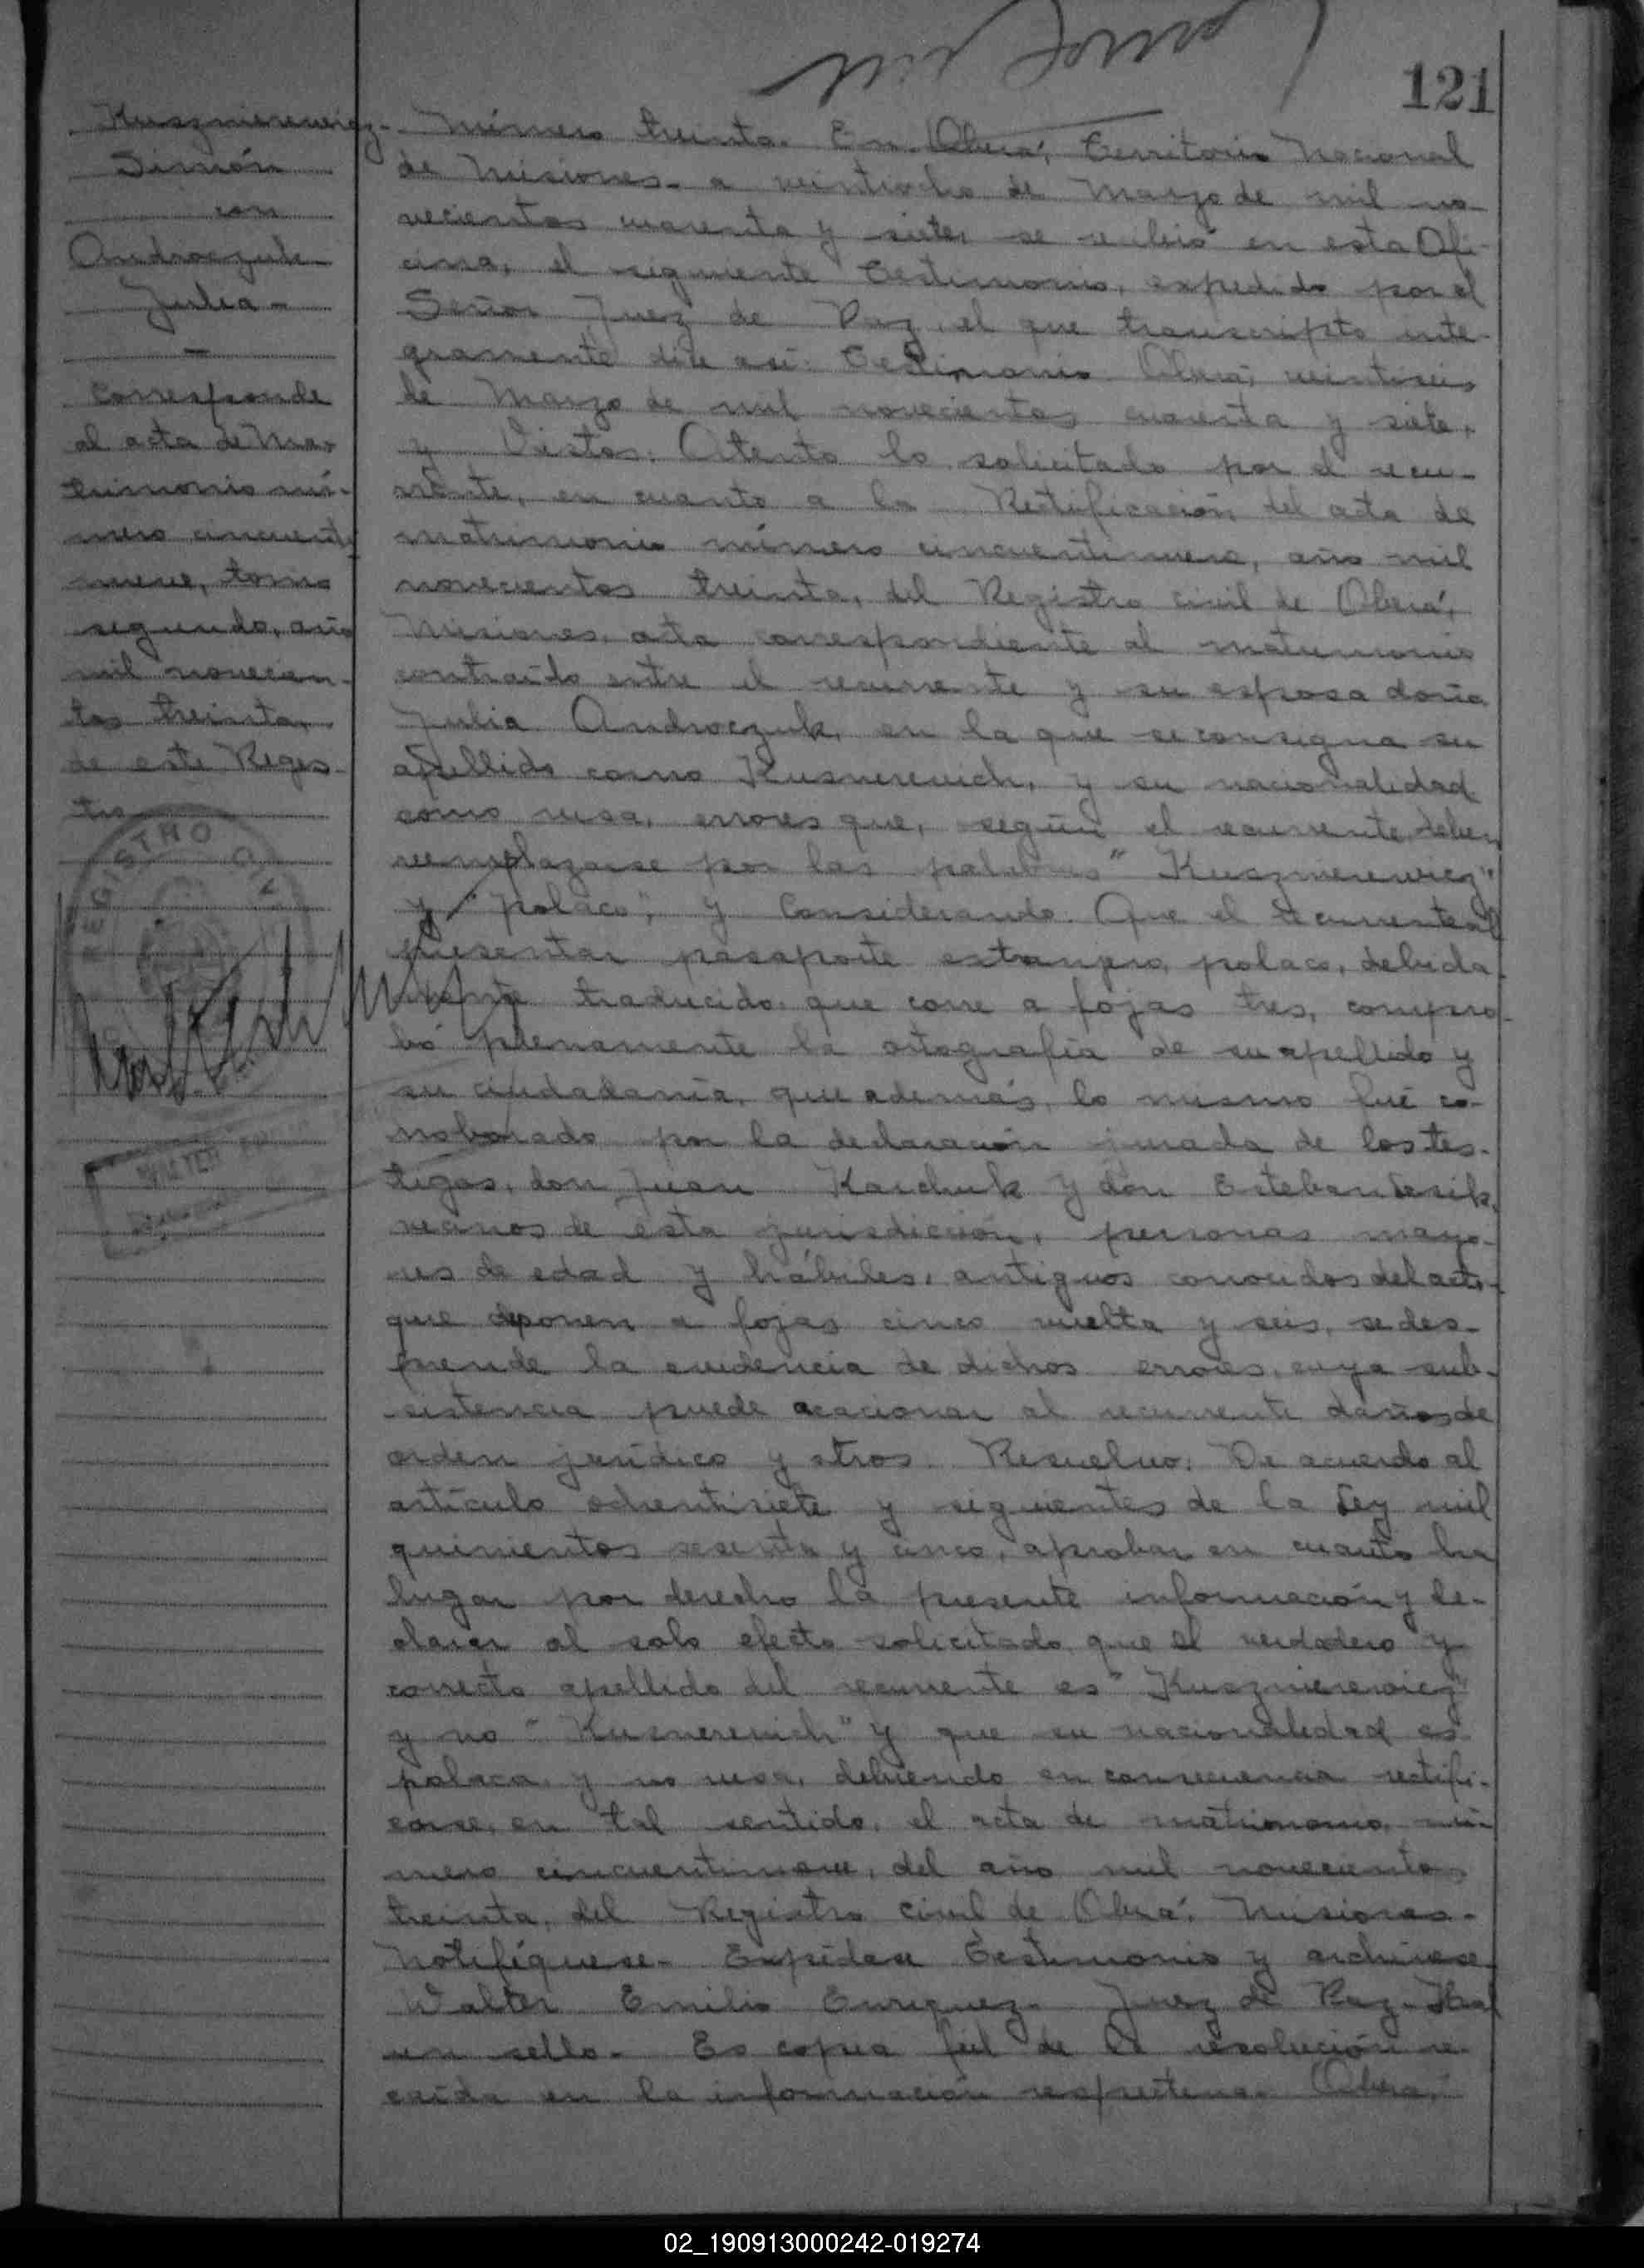 121
Kuszmierewicz-
Simón
con
Androczuk
Julia-
Corresponde
al acta de Ma-
trimonio nú-
mero cincuenti
nueve, tomo
segundo, año
mil novecien-
tos treinta,
de este Regis-
tro
REGISTRO CIVIL
WALTER
Número treinta. En Oberá, Territorio Nacional
de Misiones a veintiocho de Marzo de mil no-
vecientos cuarenta y siete, se recibió en esta Ofi-
cina, el siguiente Testimonio, expedido por el
Señor Juez de Paz, el que transcripto inte-
gramente dice así: Testimonio. Oberá, veintiseis
de Marzo de mil novecientos cuarenta y siete,
y Vistos: Atento lo solicitado por el recu-
rrente, en cuanto a la Rectificación del acta de
matrimonio número cincuentinueve, año mil
novecientos treinta, del Registro civil de Oberá,
Misiones, acta correspondiente al matrimonio
contraído entre el recurrente y su esposa doña
Julia Androczuk, en la que se consigna su
apellido como Kusnerevich, y su nacionalidad
como rusa, errores que, según el recurrente deben
reemplazarse por las palabras "Kuszmierewicz"
y "polaco", y Considerando: Que el recurrente al
presentar pasaporte extranjero, polaco, debida-
mente traducido que corre a fojas tres, compro-
bó plenamente la ortografía de su apellido y
su ciudadanía, que además, lo mismo fué co-
rroborado por la declaración jurada de los tes-
tigos, don Juan Karchuk y don Esteban
vecinos de esta jurisdicción, personas mayo-
res de edad y hábiles, antiguos conocidos del actor
que deponen a fojas cinco vuelta y seis, se des-
prende la evidencia de dichos errores, cuya sub-
sistencia puede ocacionar al recurrente daños de
orden jurídico y otros. Resuelvo: De acuerdo al
artículo ochentisiete y siguientes de la Ley mil
quinientos sesenta y cinco, aprobar en cuanto ha
lugar por derecho la presente información y de-
clarar al solo efecto solicitado que el verdadero y
correcto apellido del recurrente es "Kuszmierewicz"
y no "Kusnerevich" y que su nacionalidad es
polaca y no rusa, debiendo en consecuencia rectifi-
carse, en tal sentido, el acta de matrimonio nú-
mero cincuentinueve, del año mil novecientos
treinta, del Registro civil de Oberá, Misiones-
Notifíquese- Expídase Testimonio y archívese
Walter Emilio Enriquez- Juez de Paz- Hay
un sello- Es copia fiel de la resolución re-
caída en la información respectiva. Oberá,
02_190913000242-019274